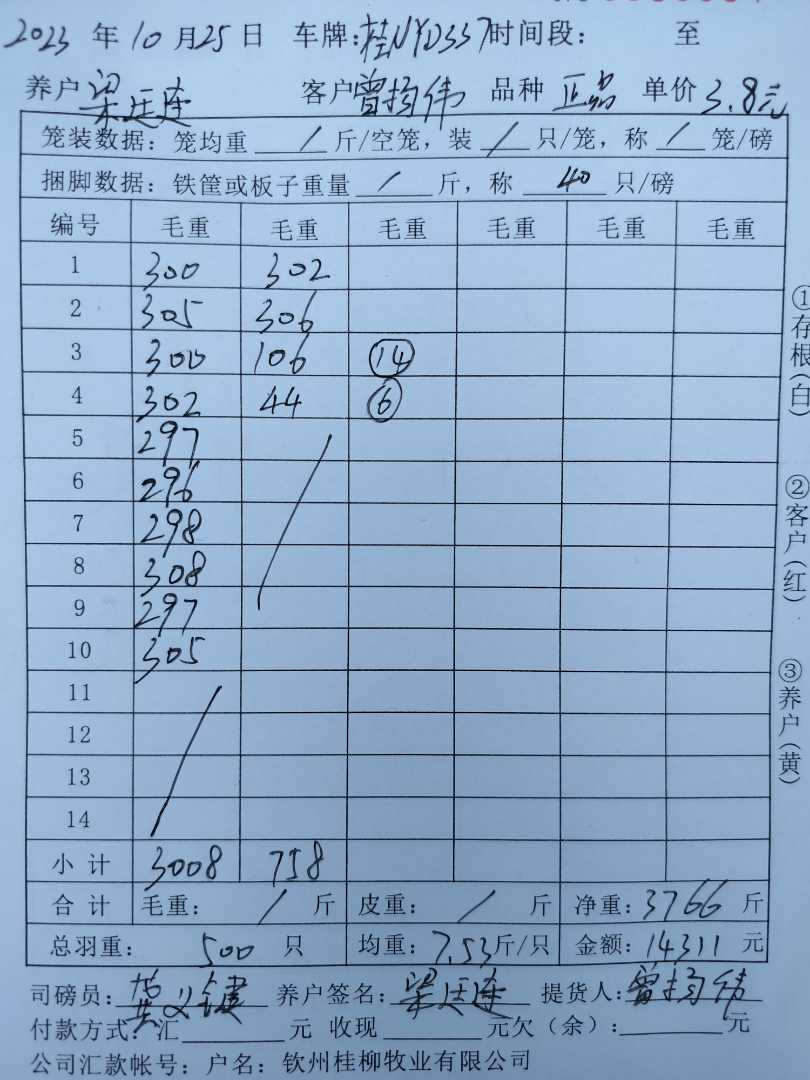 2023 年 10 月 25 日 车牌: 桂NYD337 时间段: 至
养户 梁廷连 客户 曾均伟 品种 正品 单价 3.8元
笼装数据: 笼均重 / 斤/空笼, 装 / 只/笼, 称 / 笼/磅
捆脚数据: 铁筐或板子重量 / 斤, 称 40 只/磅
编号 毛重 毛重 毛重 毛重 毛重 毛重
1 300 302
2 305 306
3 300 106 ⑭
4 302 44 ⑥
5 297 /
6 296
7 298
8 308
9 297
10 305
11 /
12
13
14
小计 3008 758
合计 毛重: / 斤 皮重: / 斤 净重: 3766 斤
总羽重: 500 只 均重: 7.53斤/只 金额: 14311 元
司磅员: 养户签名: 梁廷连 提货人: 曾均伟
付款方式: 汇 元 收现 元欠(余): 元
公司汇款帐号: 户名: 钦州桂柳牧业有限公司
①存根(白)
②客户(红)
③养户(黄)